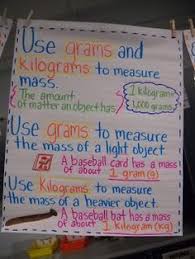 Use grams and
kilograms to measure
mass.
The amount
of matter an object has
1 kilogram=
1,000 grams
Use grams to measure
the mass of a light object
A baseball card has a mass
of about 1 gram (g)
Use Kilograms to measure
the mass of a heavier object.
A baseball bat has a mass
of about 1 kilogram (kg)